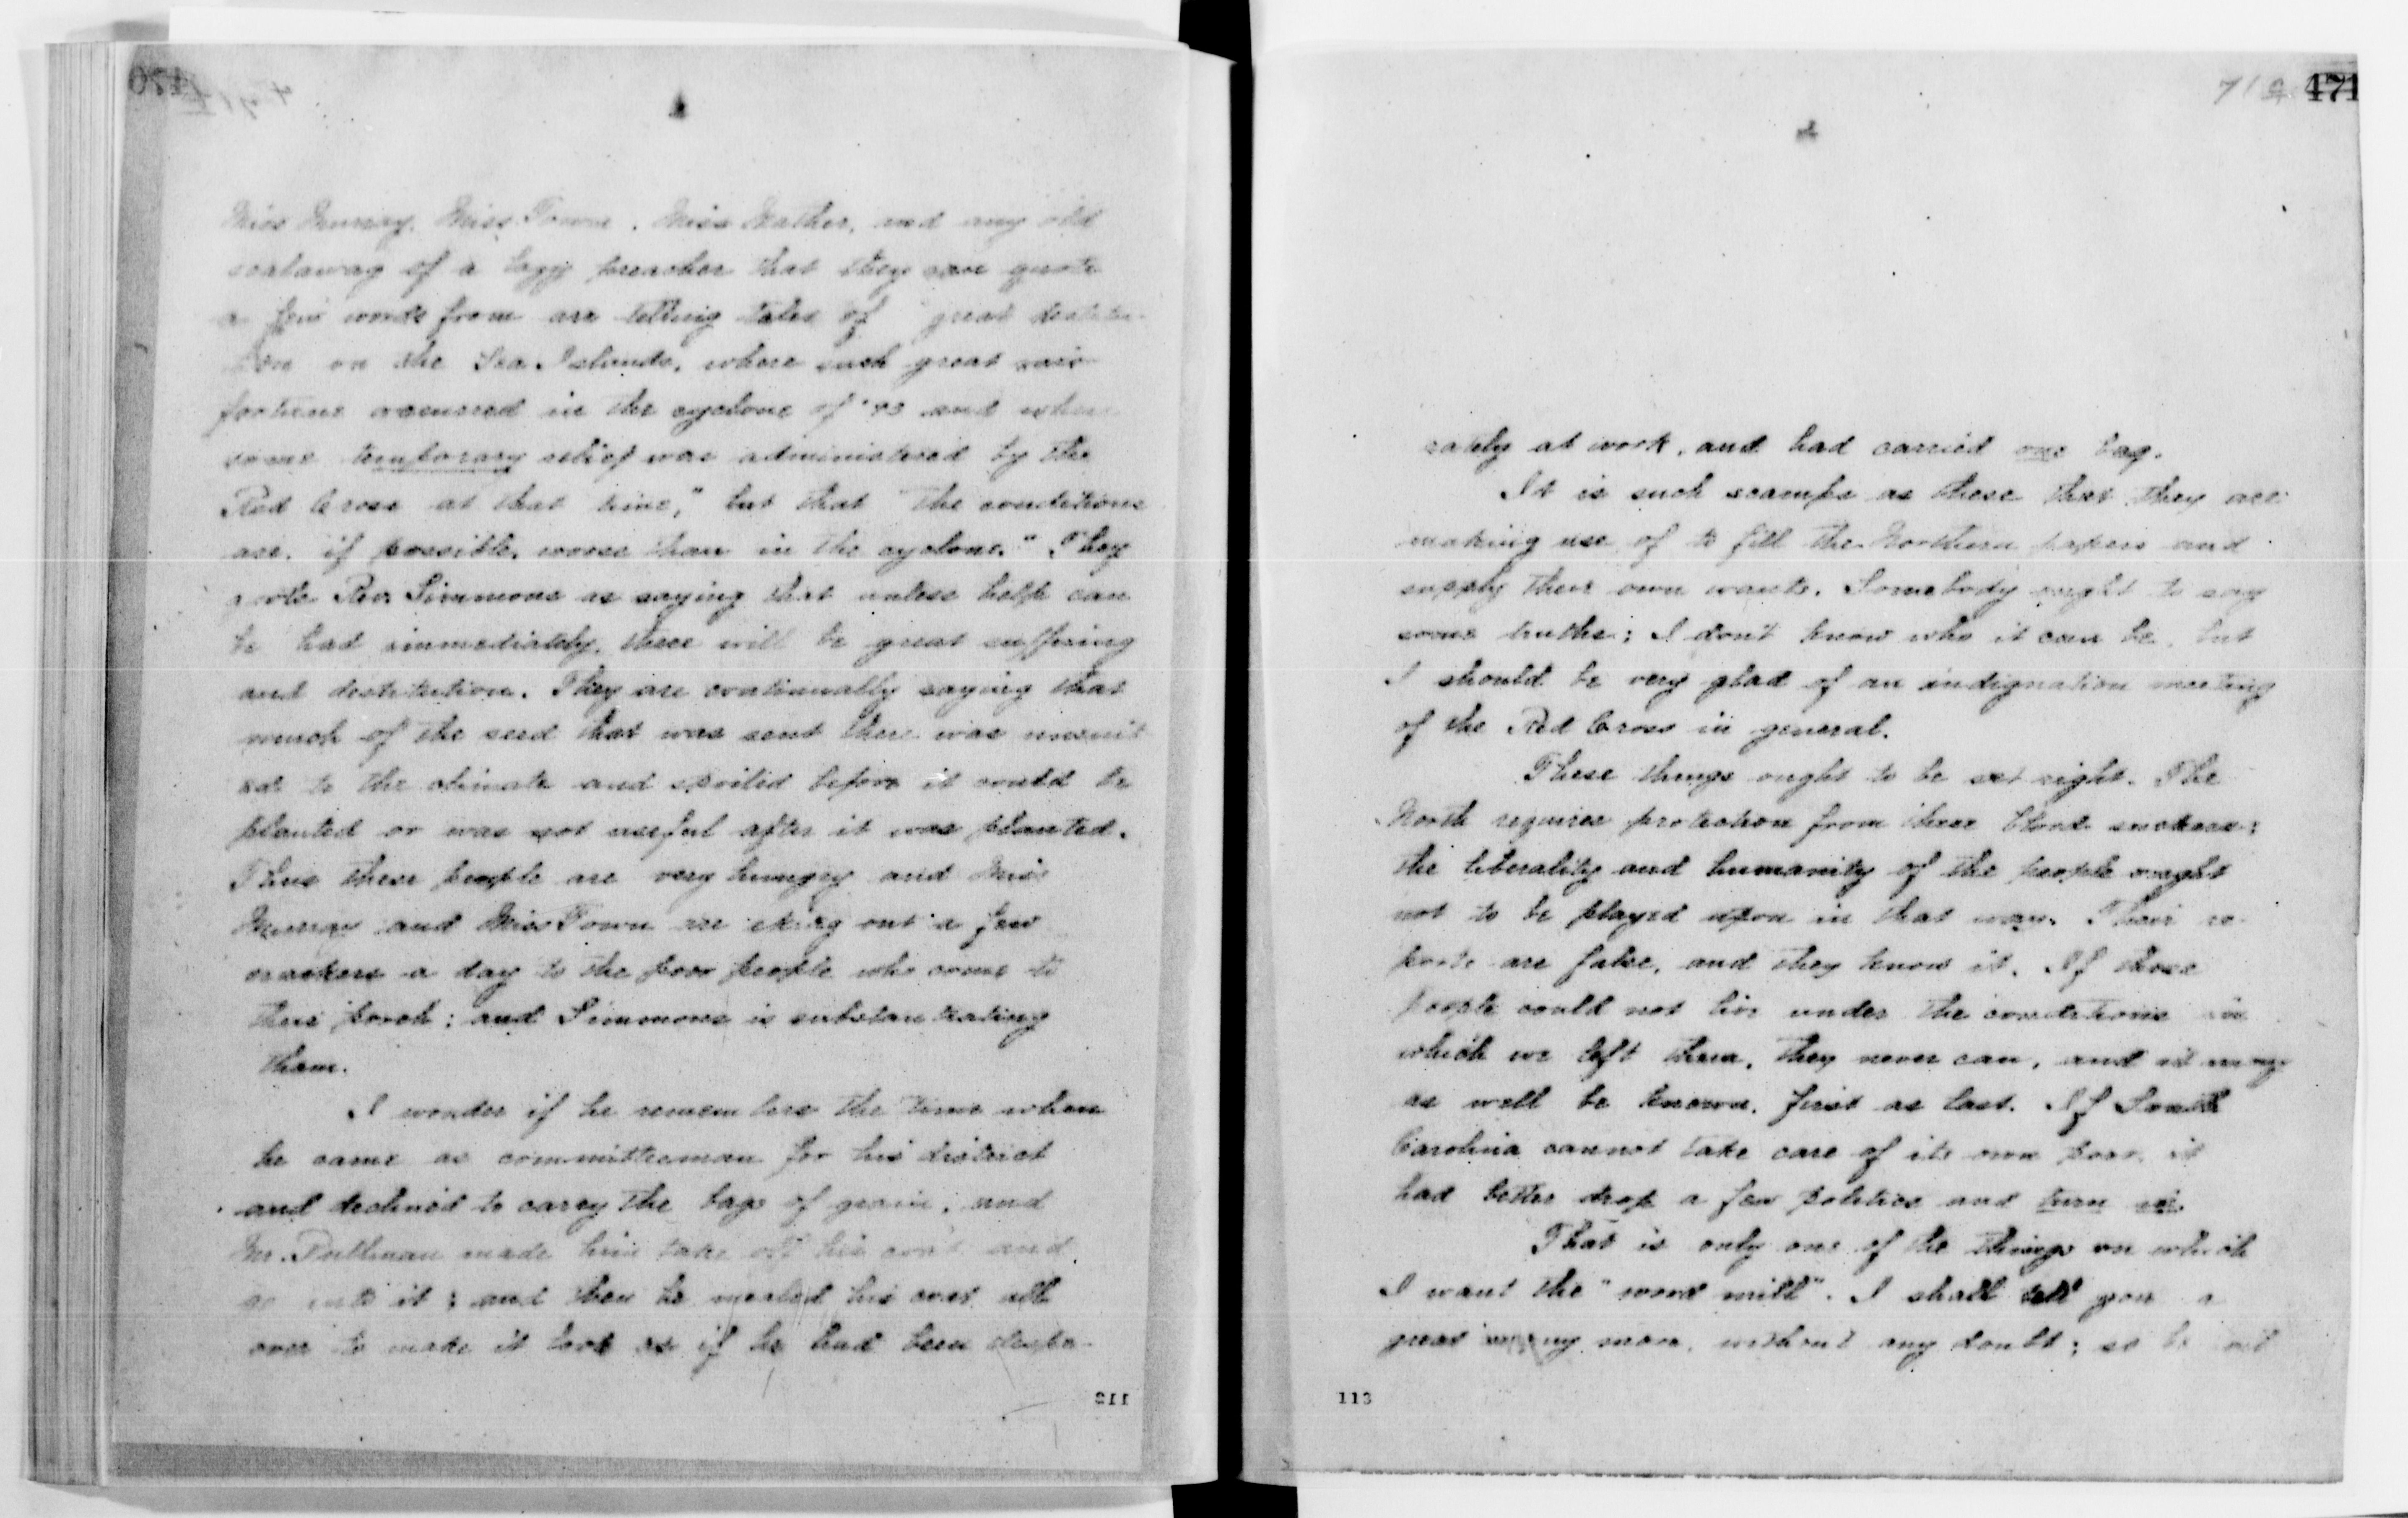 470
Miss Murray, Miss Towne, Miss Mather, and any old
scalawag of a lazy preacher that they can quote
a few words from are telling tales of great destitu-
tion on the Sea Islands, where such great mis-
fortune occurred in the cyclone of '93 and where
some temporary relief was administered by the
Red Cross at that time," but that "the conditions
are, if possible, worse than in the cyclone." They
quote Rev. Simmons as saying that unless help can
be had immediately, there will be great suffering
and destitution. They are continually saying that
much of the seed that was sent there was unsuit
ed to the climate and spoiled before it could be
planted or was not useful after it was planted.
Thus these people are very hungry and Miss
Murray and Miss Town are eking out a few
crackers a day to the poor people who come to
their porch; and Simmons is substantiating
them.
I wonder if he remembers the time when
he came as committeeman for his district
and declined to carry the bags of grain, and
Mr. Pullman made him take off his coat and
go into it; and then he mealed his coat all
over to make it look as if he had been despe-
112
471
rately at work, and had carried one bag.
It is such scamps as these that they are
making use of to fill the Northern papers and
supply their own wants. Somebody ought to say
some truths; I don't know who it can be, but
I should be very glad of an indignation meeting
of the Red Cross in general.
These things ought to be set right. The
North requires protection from these blood suckers;
the liberality and humanity of the people ought
not to be played upon in that way. Their re-
ports are false, and they know it. If those
people could not live under the conditions in
which we left them, they never can, and it may
as well be known, first as last. If South
Carolina cannot take care of its own poor, it
had better drop a few politics and turn in.
That is only one of the things on which
I want the "word mill". I shall tell you a
great many more, without any doubt; so be not
113